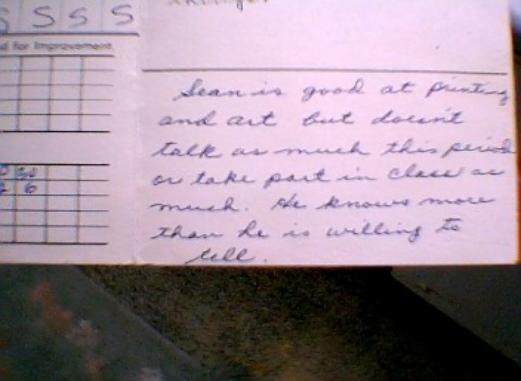 S S S S
d for Improvement.
Sean is good at printing
and art but doesn't
talk as much this period
or take part in class as
much. He knows more
than he is willing to
tell.
6